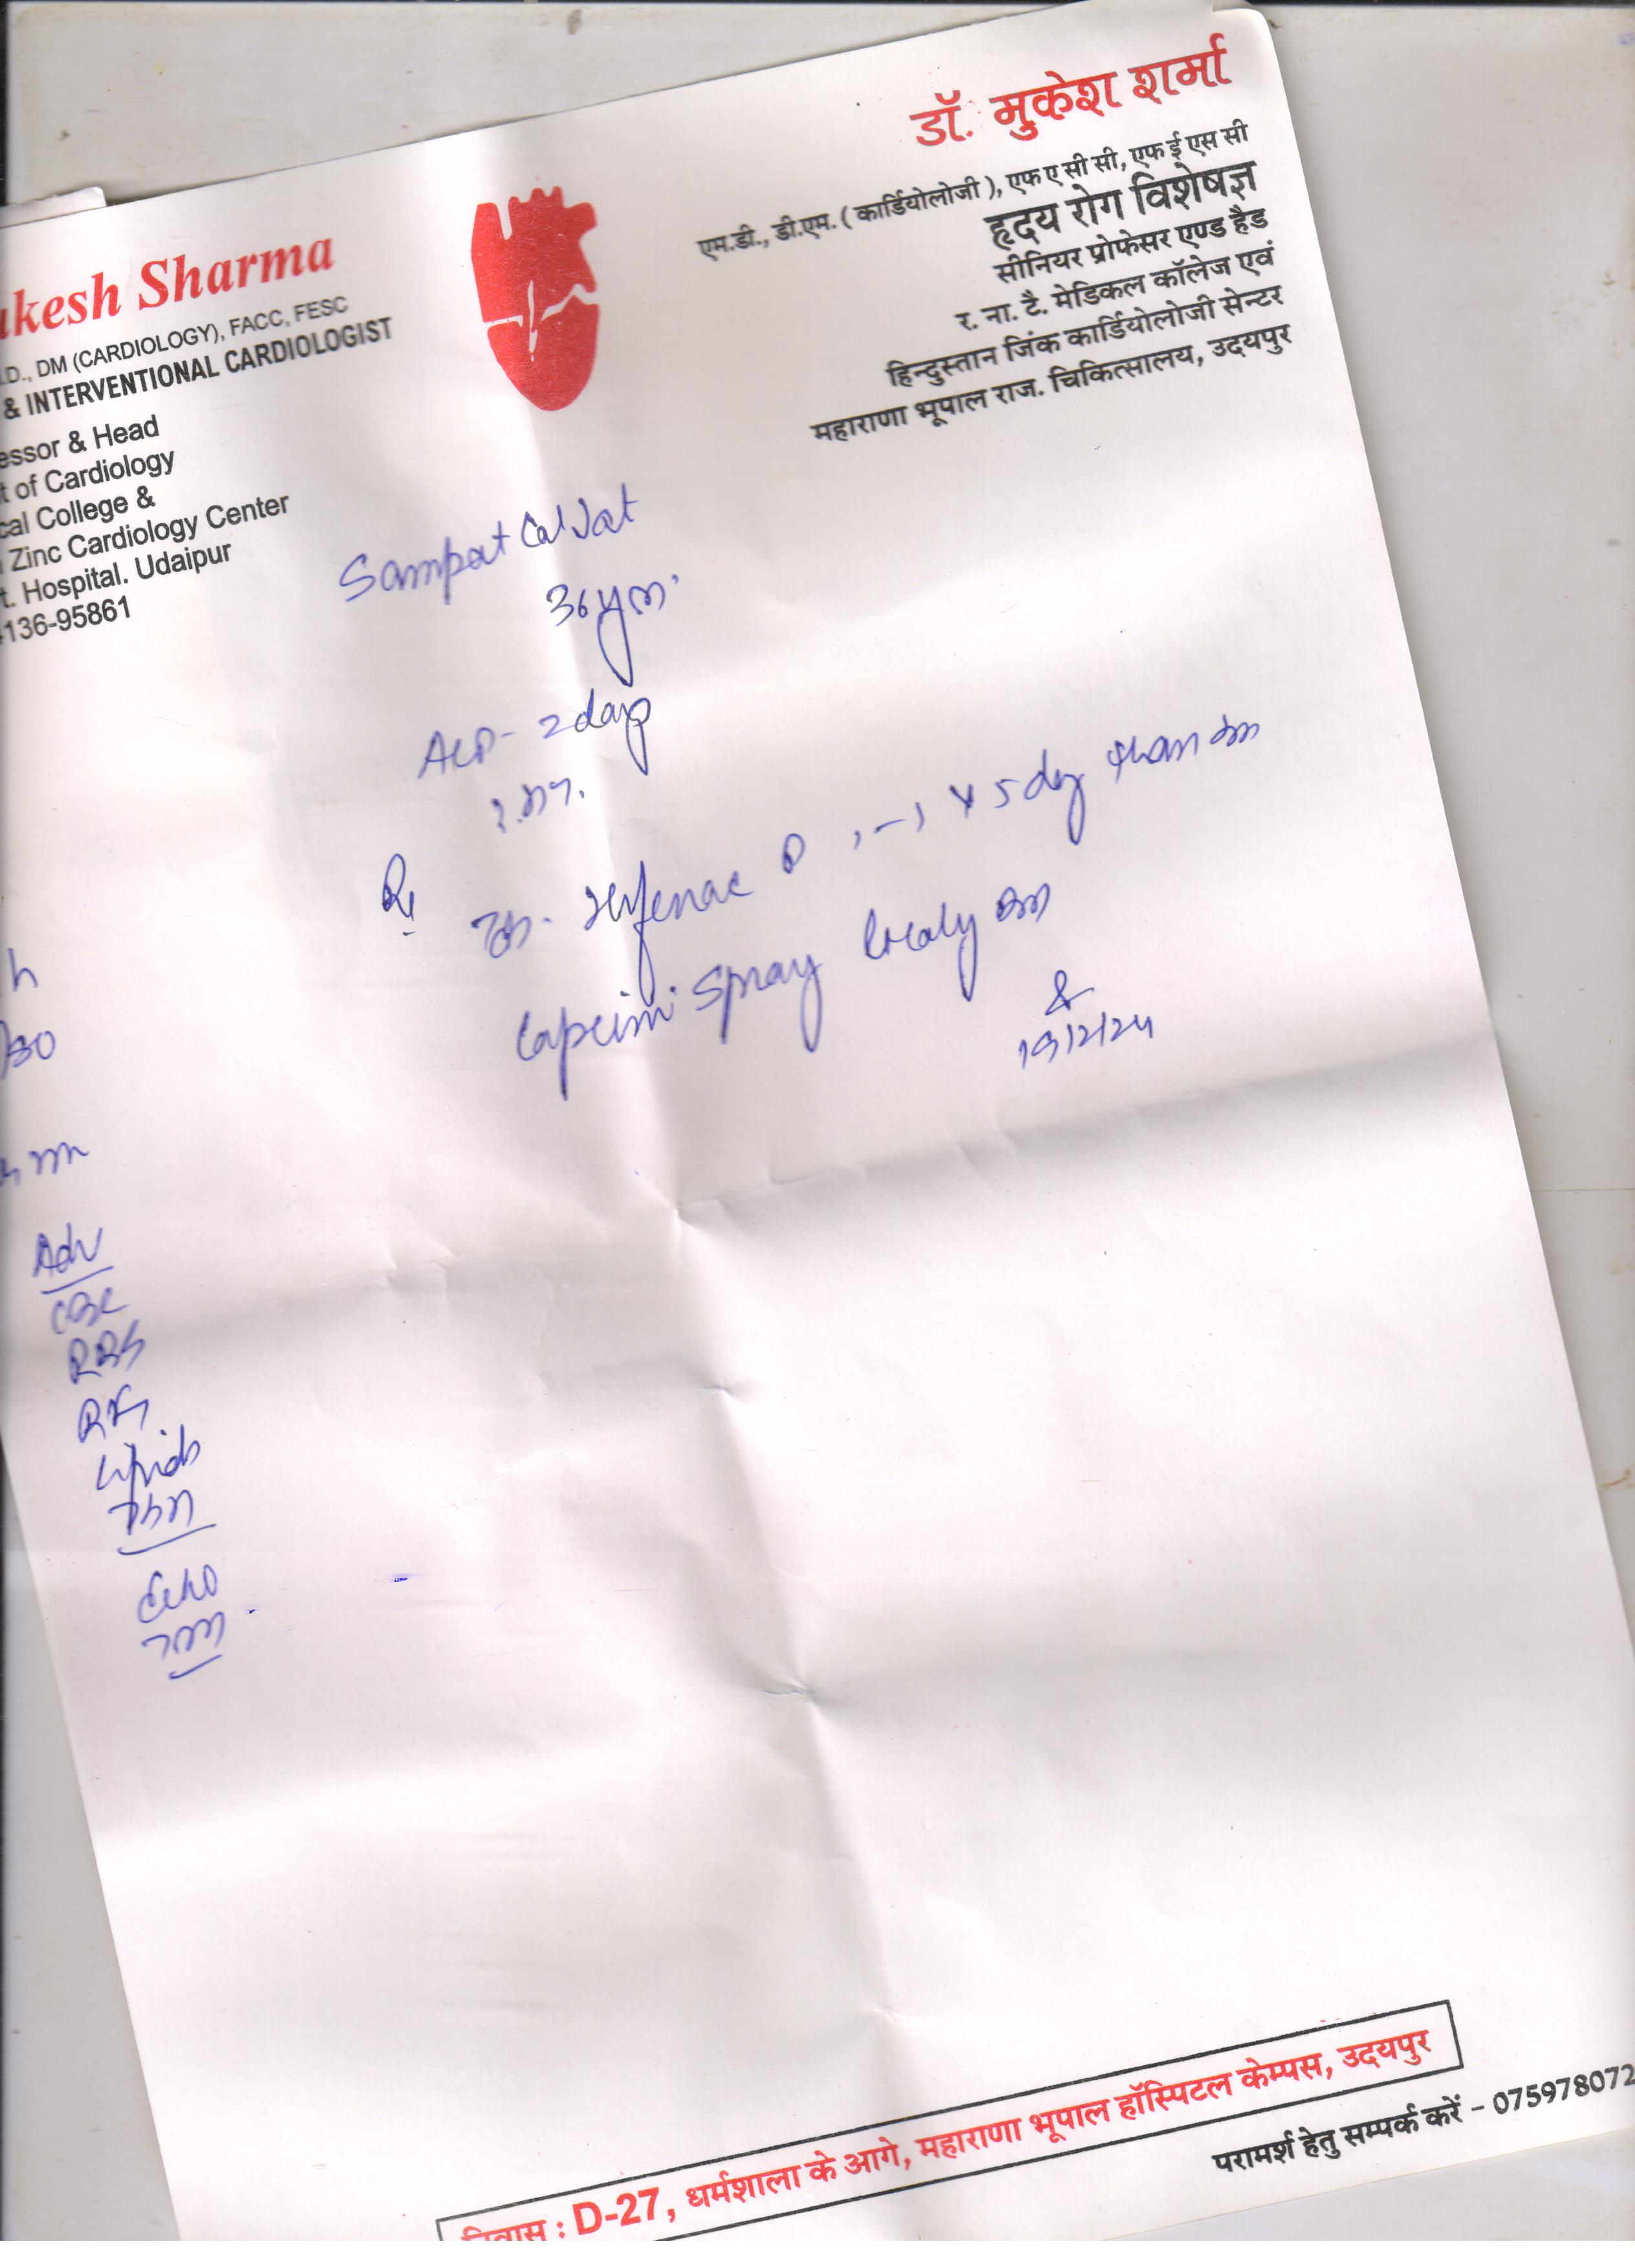 डॉ. मुकेश शर्मा
एम.डी., डी.एम. ( कार्डियोलोजी ), एफ ए सी सी, एफ ई एस सी
हृदय रोग विशेषज्ञ
सीनियर प्रोफेसर एण्ड हैड
र. ना. टै. मेडिकल कॉलेज एवं
हिन्दुस्तान जिंक कार्डियोलोजी सेन्टर
महाराणा भूपाल राज. चिकित्सालय, उदयपुर
ukesh Sharma
.D., DM (CARDIOLOGY), FACC, FESC
& INTERVENTIONAL CARDIOLOGIST
essor & Head
t of Cardiology
cal College &
Zinc Cardiology Center
t. Hospital. Udaipur
136-95861
Sampat Lal Jat
36y m
ACP - 2 days
Rx
P 1-1 x 5 day
spray locally
19/2/24
h
/80
Adv
CBC
RBS
RFT
Lipids
TSH
Echo
TMT
निवास : D-27, धर्मशाला के आगे, महाराणा भूपाल हॉस्पिटल केम्पस, उदयपुर
परामर्श हेतु सम्पर्क करें - 075978072